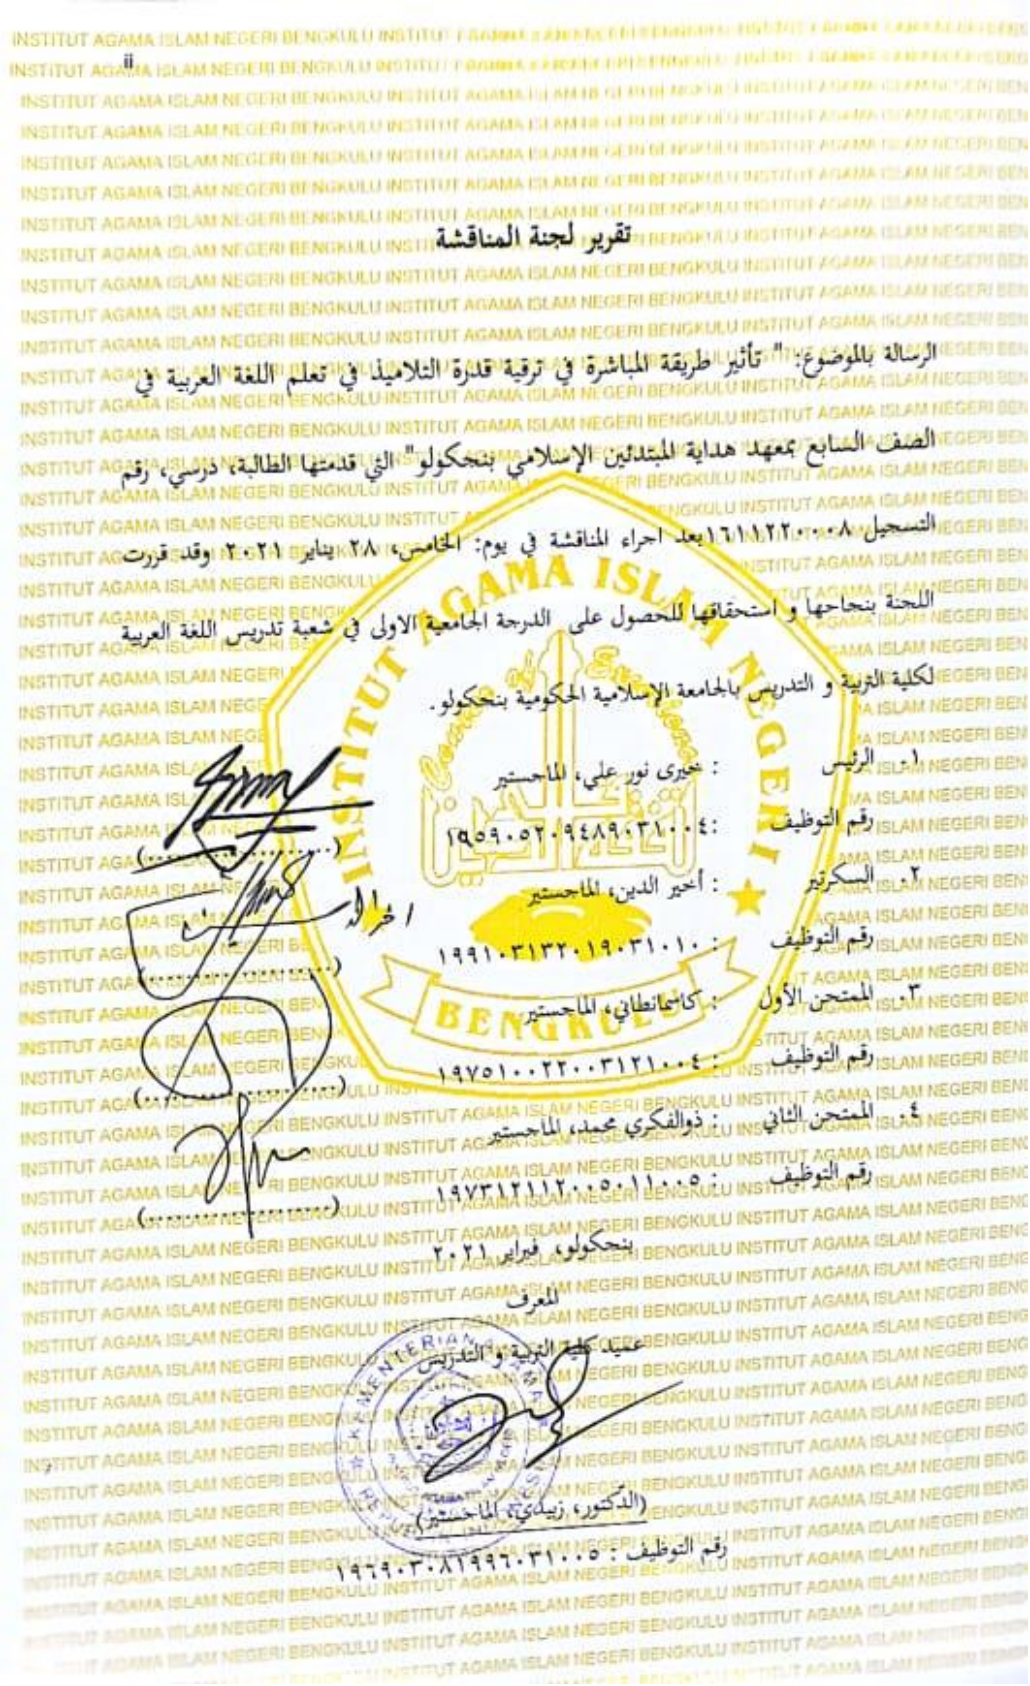 ii
تقرير لجنة المناقشة
الرسالة بالموضوع: " تأثير طريقة المباشرة في ترقية قدرة التلاميذ في تعلم اللغة العربية في
الصف السابع بمعهد هداية المبتدئين الإسلامي بنجكولو" التي قدمتها الطالبة، درسي، رقم
التسجيل ١٦١١٢٢٠٠٠٨ بعد اجراء المناقشة في يوم: الخامس، ٢٨ يناير ٢٠٢١ وقد قررت
اللجنة بنجاحها و استحقاقها للحصول على الدرجة الجامعية الاولى في شعبة تدريس اللغة العربية
لكلية التربية و التدريس بالجامعة الإسلامية الحكومية بنجكولو.
١. الرئيس : خيرى نور علي، الماجستير
رقم التوظيف :١٩٥٩٠٥٢٠٩٤٨٩٠٣١٠٠٤
(.....................)
٢. السكرتير : أخير الدين، الماجستير
رقم التوظيف : ١٩٩١٠٣١٣٢٠١٩٠٣١٠١٠
(.....................)
٣. الممتحن الأول : كاسمانطاني، الماجستير
رقم التوظيف : ١٩٧٥١٠٠٢٢٠٠٣١٢١٠٠٤
(.....................)
٤. الممتحن الثاني : ذوالفكري محمد، الماجستير
رقم التوظيف : ١٩٧٣١٢١١٢٠٠٥٠١١٠٠٥
(.....................)
بنجكولو، فبراير ٢٠٢١
المعرف
عميد كلية التربية و التدريس
(الدكتور، زبيدي، الماجستير)
رقم التوظيف : ١٩٦٩٠٣٠٨١٩٩٦٠٣١٠٠٥
INSTITUT AGAMA ISLAM NEGERI
BENGKULU
KEMENTERIAN AGAMA